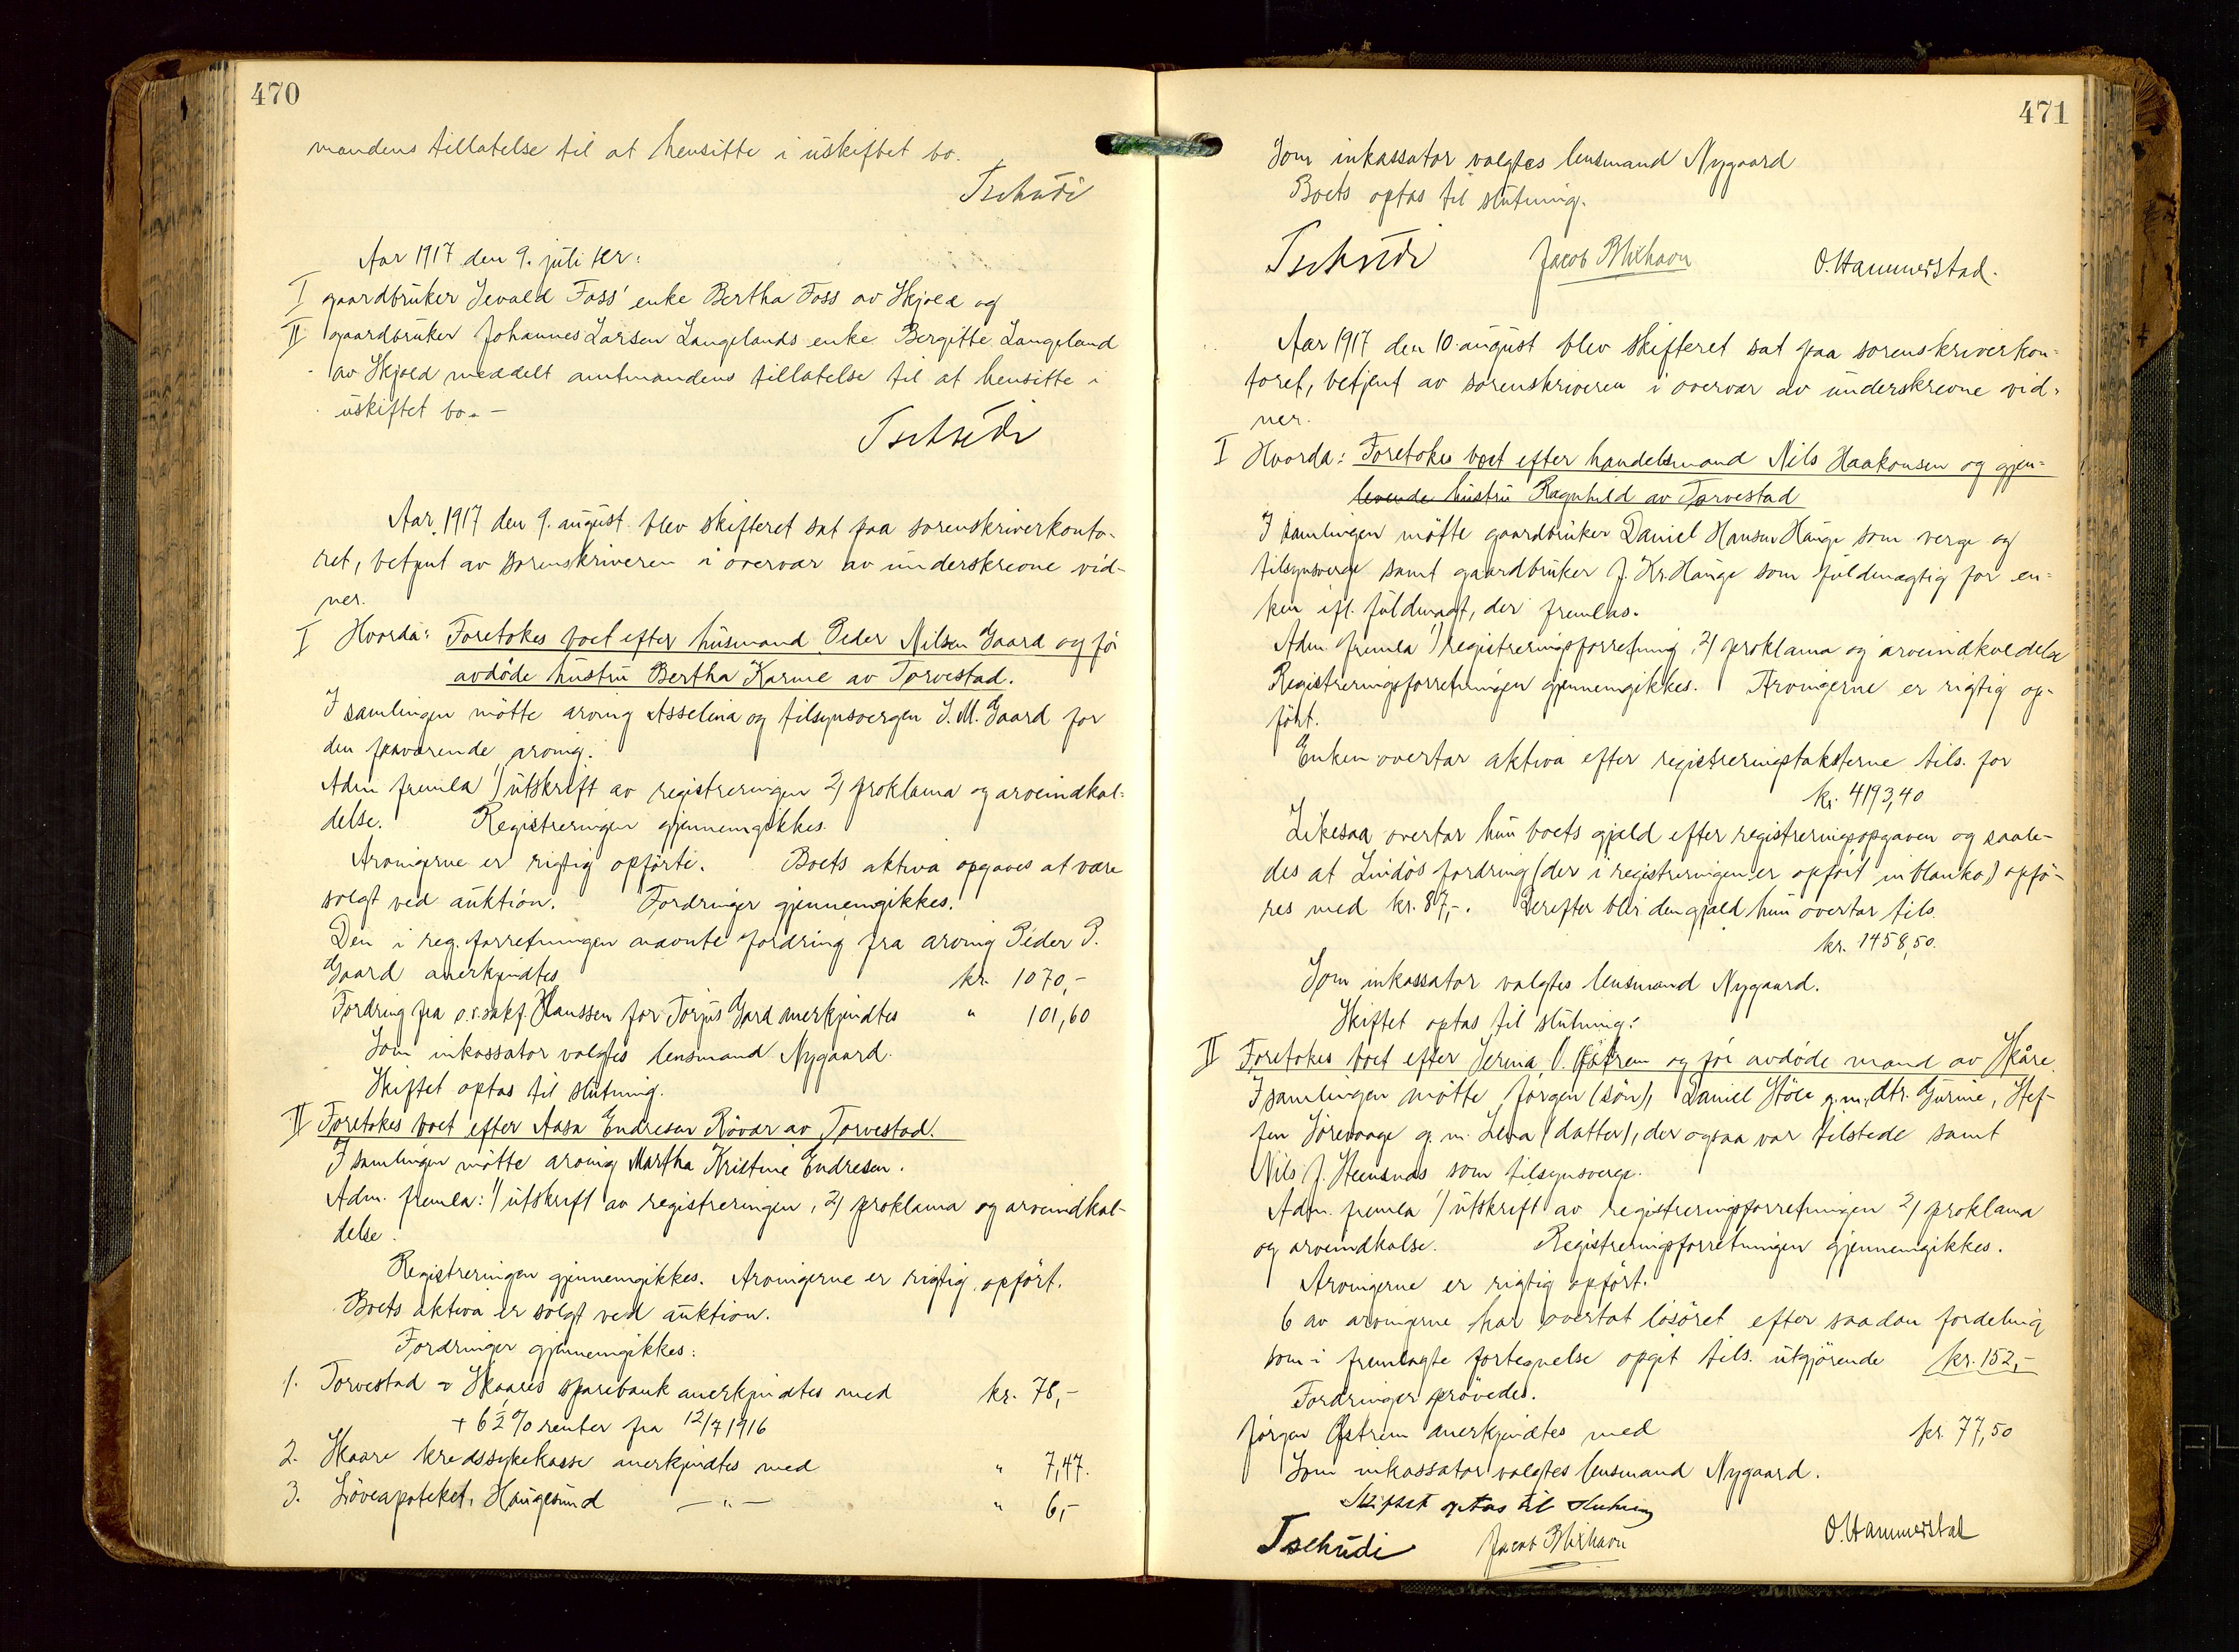 470
mandens tillatelse til at hensitte i uskiftet bo.
Tschudi
Aar 1917 den 9. juli er:
I gaardbruker Sevald Foss' enke Bertha Foss av Skjold og
II gaardbruker Johannes Larsen Langelands enke Bergitte Langeland
av Skjold meddelt amtmandens tillatelse til at hensitte i
uskiftet bo. –
Tschudi
Aar 1917 den 9. august blev skifteret sat paa sorenskriverkonto-
ret, betjent av sorenskriveren i overvær av underskrevne vid-
ner.
I Hvorda: Foretokes boet efter husmand Peder Nilsen Gaard og før
avdöde hustru Bertha Karine av Torvestad.
I samlingen mötte arving Asselina og tilsynsvergen S. M. Gaard for
den fraværende arving.
Adm fremla 1) utskrift av registreringen 2) proklama og arveindkal-
delse. Registreringen gjennemgikkes.
Arvingerne er rigtig opförte. Boets aktiva opgaves at være
solgt ved auktion. Fordringer gjennemgikkes.
Den i reg. forretningen nævnte fordring fra arving Peder P.
Gaard anerkjendtes kr. 1070,-
Fordring fra o.r.sakf. Hanssen for Torjus Gard anerkjendtes " 101,60
Som inkassator valgtes lensmand Nygaard.
Skiftet optas til slutning.
II Foretokes boet efter Aasa Endresen Rövær av Torvestad.
I samlingen mötte arving Martha Kristine Endresen.
Adm. fremla: 1) utskrift av registreringen, 2) proklama og arveindkal-
delse.
Registreringen gjennemgikkes. Arvingerne er rigtig opfört.
Boets aktiva er solgt ved auktion.
Fordringer gjennemgikkes:
1. Torvestad & Skaares sparebank anerkjendtes med kr. 78,-
+ 6½ % renter fra 12/7 1916
2. Skaare kredssykekasse anerkjendtes med " 7,47.
3. Löveapoteket, Haugesund — " — " 6,-
471
Som inkassator valgtes lensmand Nygaard
Boets optas til slutning.
Tschudi Jacob Blixhavn O. Hammerstad.
Aar 1917 den 10. august blev skifteret sat paa sorenskriverkon-
toret, betjent av sorenskriveren i overvær av underskrevne vid-
ner.
I Hvorda: Foretokes boet efter handelsmand Nils Haakonsen og gjen-
levende hustru Ragnhild av Torvestad
I samlingen mötte gaardbruker Daniel Hansen Hauge som verge og
tilsynsverge samt gaardbruker J. Kr. Hauge som fuldmægtig for en-
ken ifl. fuldmagt, der fremlas.
Adm. fremla 1) registreringsforretning, 2) proklama og arveindkaldelse
Registreringsforretningen gjennemgikkes. Arvingerne er rigtig op-
fört.
Enken overtar aktiva efter registreringstaksterne tils. for
kr. 4193,40
Likesaa overtar hun boets gjæld efter registreringsopgaven og saale-
des at Lindös fordring (der i registreringen er opfört in blanko) opfö-
res med kr. 87,-. Derefter blir den gjæld hun overtar tils.
kr. 1458,50.
Som inkassator valgtes lensmand Nygaard.
Skiftet optas til slutning.
II Foretokes boet efter Serina O. Östrem og för avdöde mand av Skåre.
I samlingen mötte Jørgen (sön), Daniel Stöle g.m. dtr. Gurine, Stef-
fen Sörevaage g.m. Lena (datter), der ogsaa var tilstede samt
Nils J. Stensnæs som tilsynsverge.
Adm. fremla 1) utskrift av registreringsforretningen 2) proklama
og arveindkalse. Registreringsforretningen gjennemgikkes.
Arvingerne er rigtig opfört.
6 av arvingerne har overtat lösöret efter saadan fordeling
som i fremlagte fortegnelse opgit tils. utgjörende kr. 152,-
Fordringer prövedes.
Jörgen Östrem anerkjendtes med kr. 77,50
Som inkassator valgtes lensmand Nygaard.
Skiftet optas til slutning
Tschudi Jacob Blixhavn O. Hammerstad